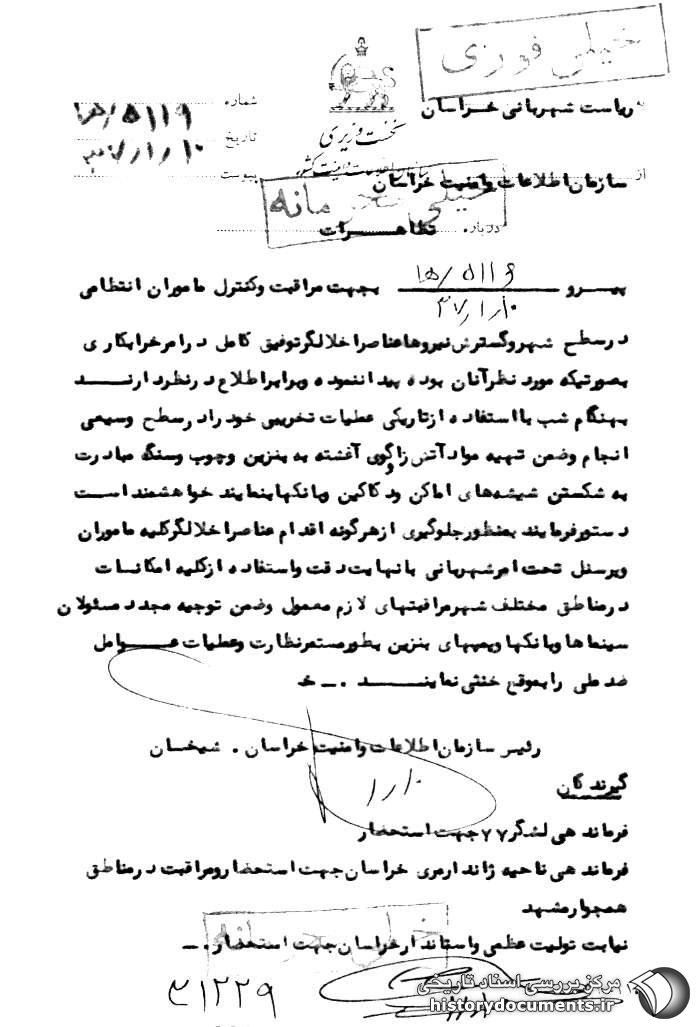 خیلی فوری
ریاست شهربانی خراسان
شماره ۵۱۱۹/ه‍۱
نخست وزیری
تاریخ ۳۷/۱/۱۰
سازمان اطلاعات و امنیت کشور
از سازمان اطلاعات و امنیت خراسان
پیوست
خیلی محرمانه
درباره تظاهرات
پیرو ۵۱۱۶/ه‍۱ ۳۷/۱/۱۰ بجهت مراقبت و کنترل ماموران انتظامی
درسطح شهر و گسترش نیروها عناصر اخلالگر توفیق کامل درامر خرابکاری
بصورتیکه مورد نظرآنان بوده پیدا ننموده و برابر اطلاع درنظر دارند
بهنگام شب با استفاده از تاریکی عملیات تخریبی خود را درسطح وسیعی
انجام وضمن تهیه مواد آتش زا و گوی آغشته به بنزین وچوب وسنگ مبادرت
به شکستن شیشه‌های اماکن و دکاکین وبانکها بنمایند خواهشمند است
دستور فرمایند بمنظور جلوگیری از هرگونه اقدام عناصر اخلالگر کلیه ماموران
وپرسنل تحت امر شهربانی با نهایت دقت واستفاده از کلیه امکانات
درمناطق مختلف شهر مراقبتهای لازم معمول وضمن توجیه مجدد مسئولان
سینماها وبانکها وپمپهای بنزین بطور مستمر نظارت وعملیات عوامل
ضد ملی را بموقع خنثی نمایند . ــ خ
رئیس سازمان اطلاعات و امنیت خراسان . شیخان
۱۰/۱
گیرندگان
فرماندهی لشگر ۷۷ جهت استحضار
فرماندهی ناحیه ژاندارمری خراسان جهت استحضار و مراقبت درمناطق
همجوار مشهد
نیابت تولیت عظمی و استاندار خراسان جهت استحضار . ــ
خیلی محرمانه
۳۱۲۲۹
مرکز بررسی اسناد تاریخی
historydocuments.ir